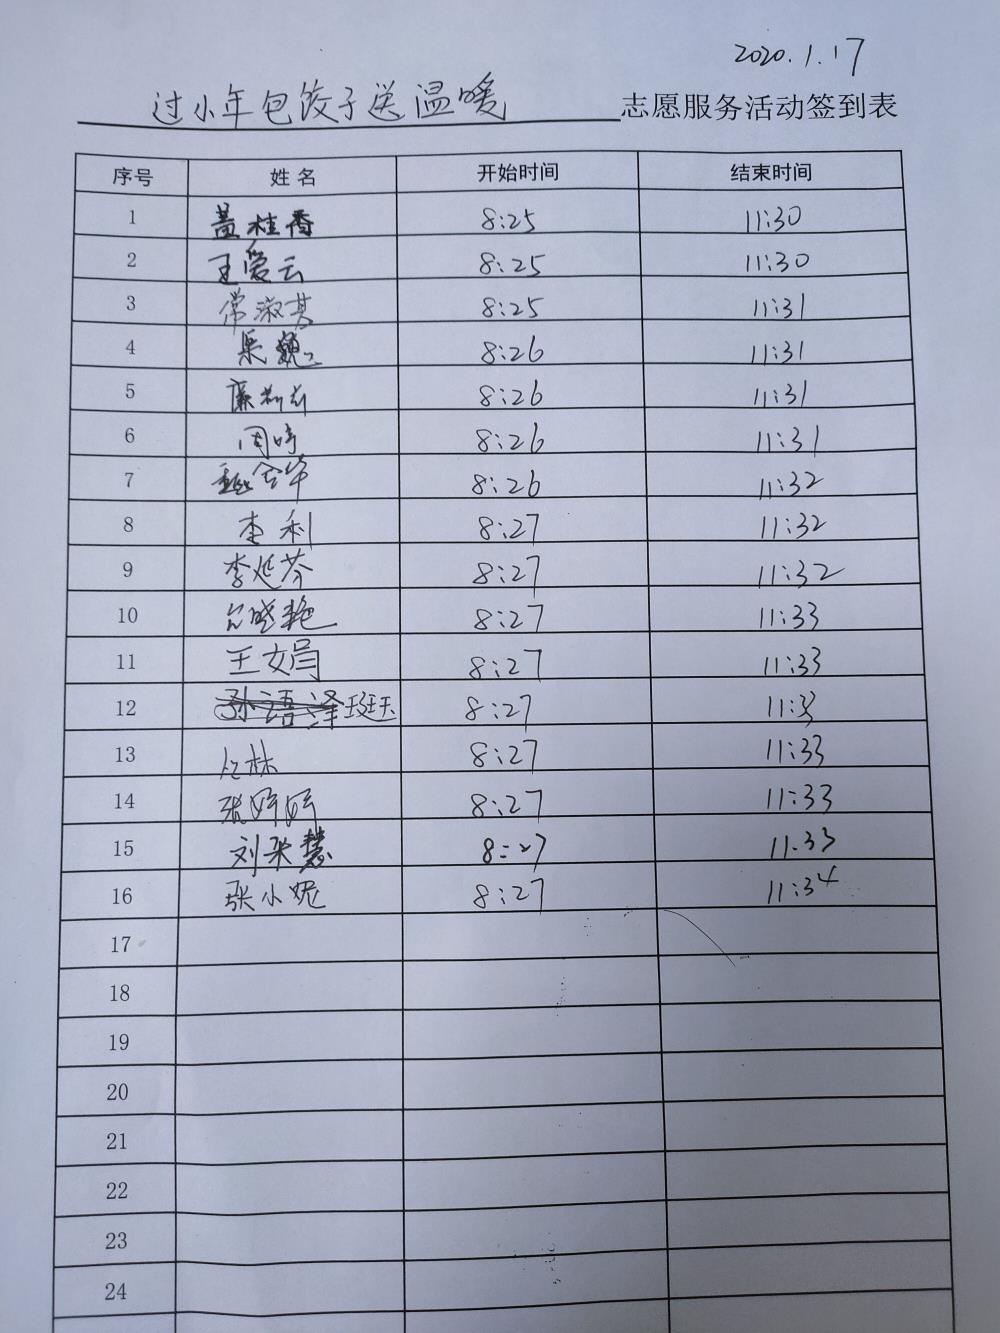 2020.1.17
过小年包饺子送温暖 志愿服务活动签到表
序号 姓名 开始时间 结束时间
1 盖桂香 8:25 11:30
2 王爱云 8:25 11:30
3 常淑其 8:25 11:31
4 8:26 11:31
5 8:26 11:31
6 周婷 8:26 11:31
7 魏金华 8:26 11:32
8 李利 8:27 11:32
9 李延芬 8:27 11:32
10 晓艳 8:27 11:33
11 王文娟 8:27 11:33
12 孙语泽 8:27 11:33
13 丛林 8:27 11:33
14 张婷婷 8:27 11:33
15 刘采慧 8:27 11:33
16 张小妮 8:27 11:34
17
18
19
20
21
22
23
24